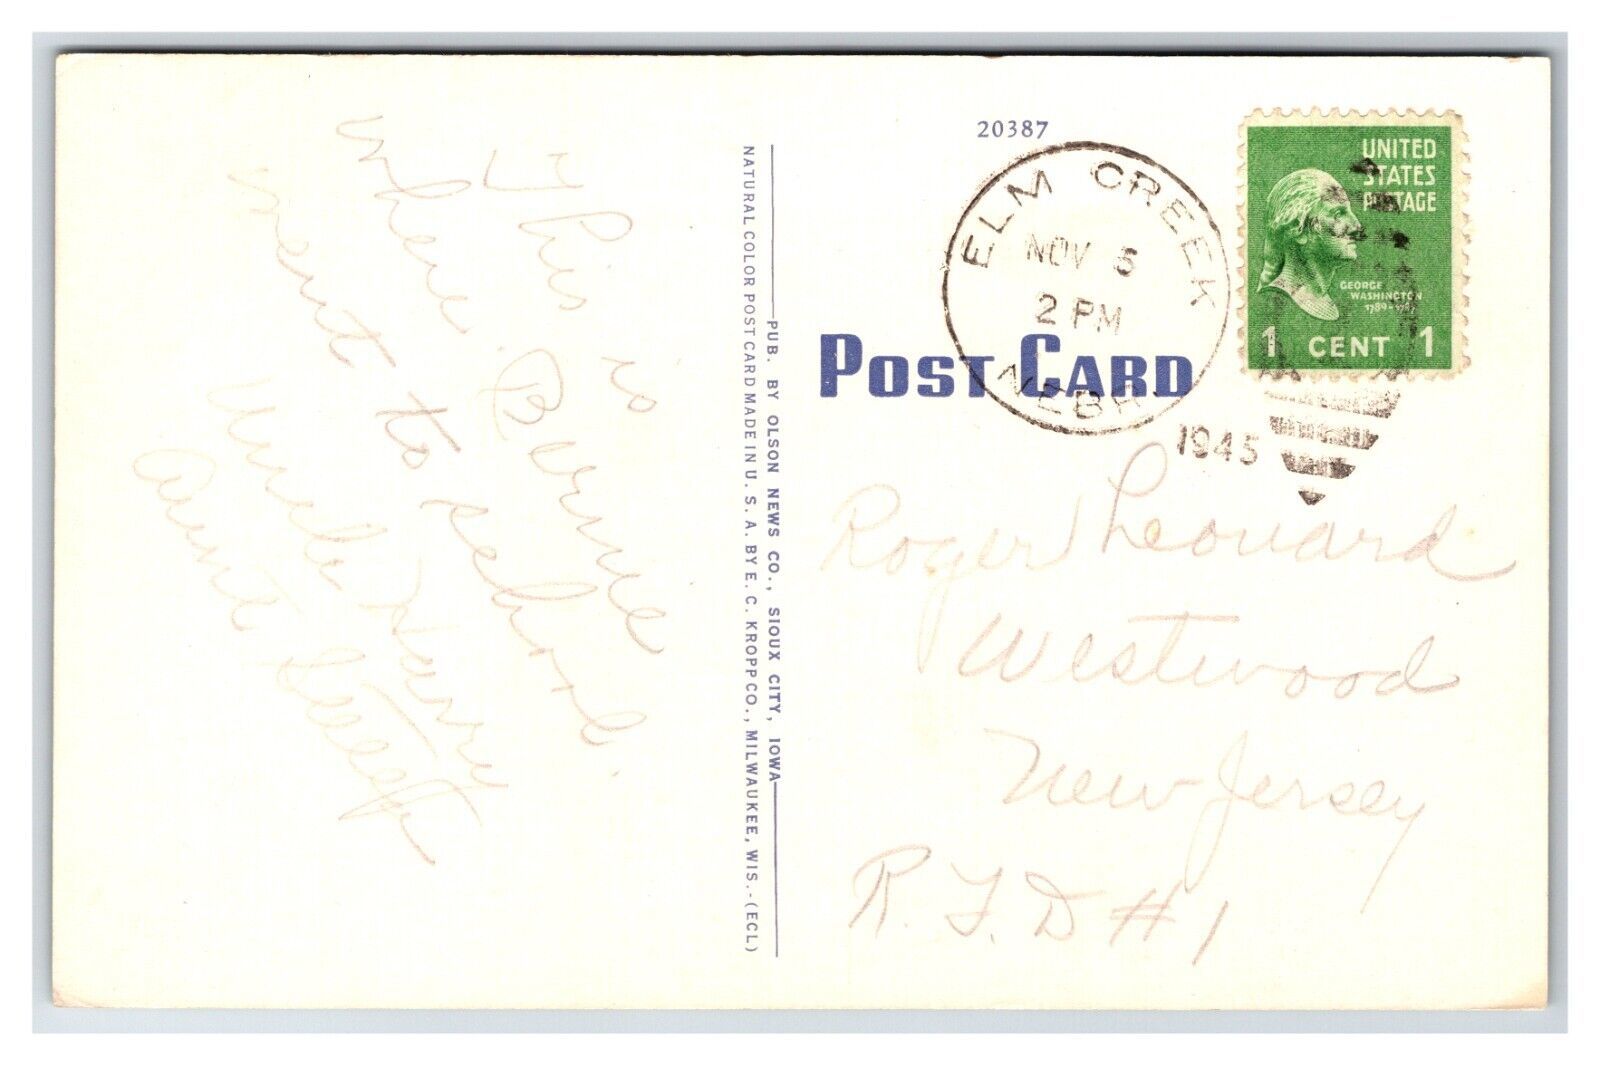 This is
where Bernie
went to school.
Uncle Harry
Aunt
PUB. BY OLSON NEWS CO., SIOUX CITY, IOWA
NATURAL COLOR POST CARD MADE IN U. S. A. BY E. C. KROPP CO., MILWAUKEE, WIS.-(ECL)
20387
ELM CREEK
NOV 5
2 PM
NEBR.
1945
UNITED
STATES
POSTAGE
GEORGE
WASHINGTON
1789-1797
1 CENT 1
POST CARD
Roger Leonard
Westwood
New Jersey
R. F. D # 1